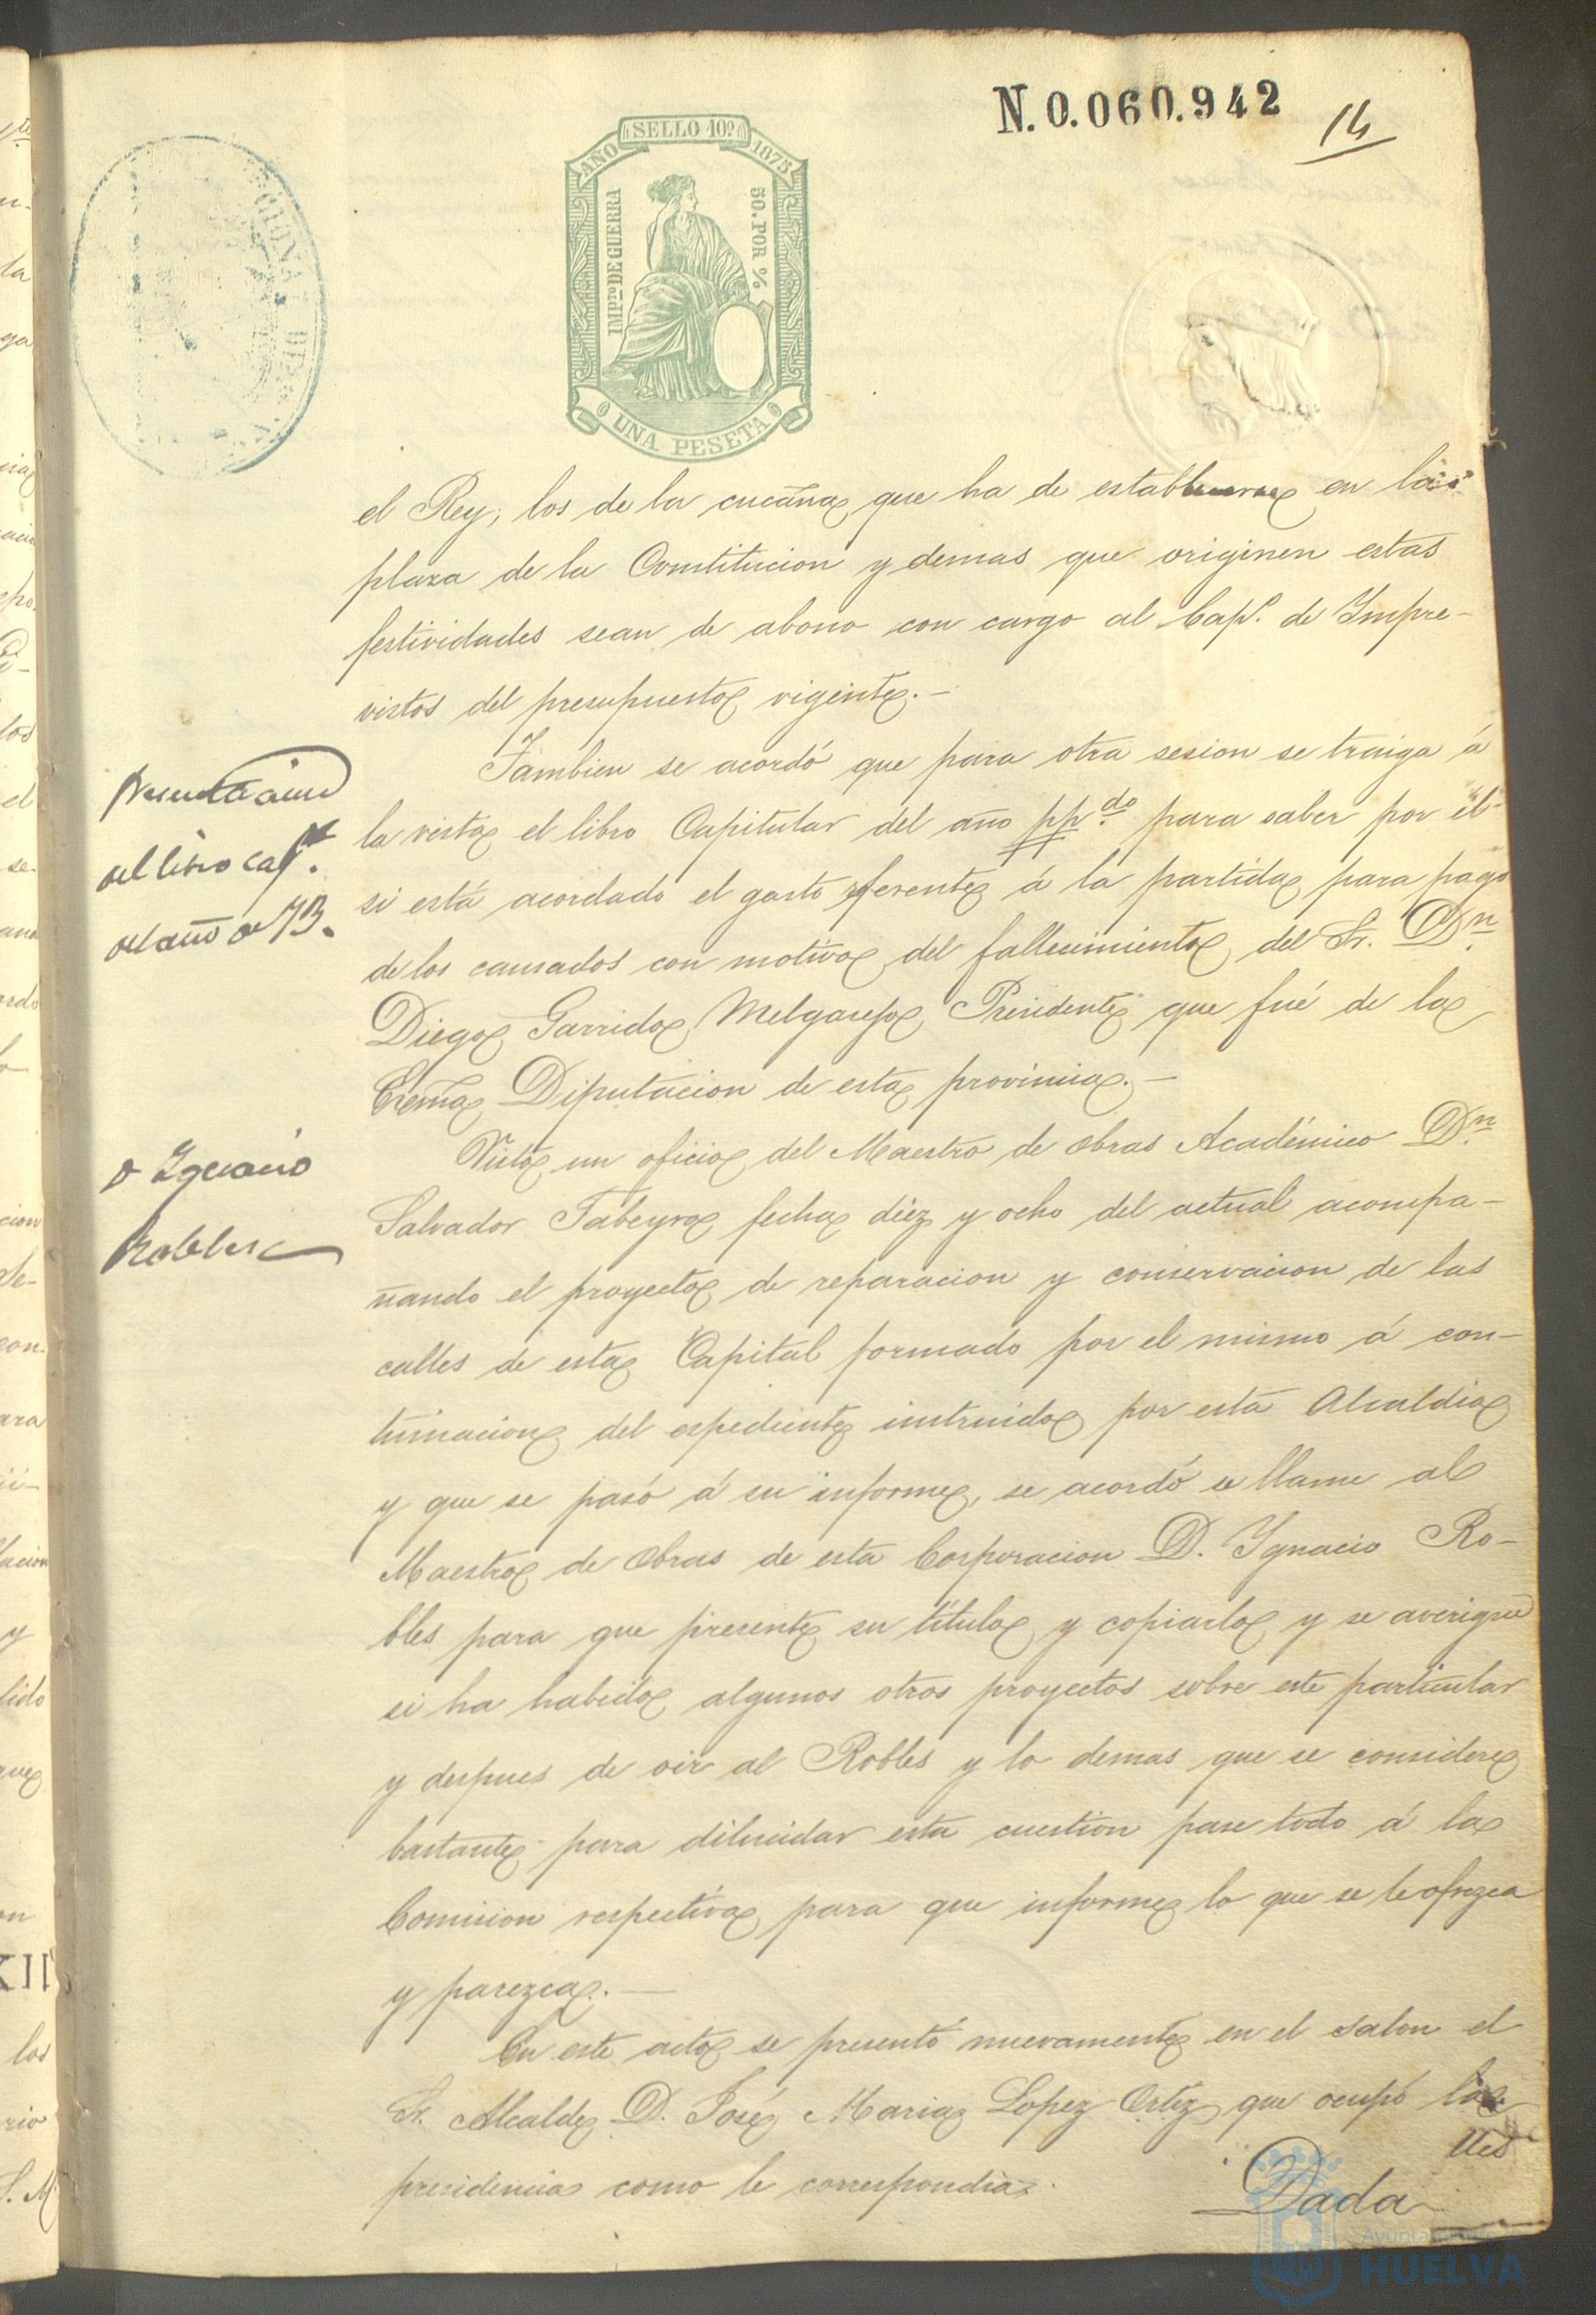 N.0.060.942
14
SELLO 10º
AÑO 1875
IMPTO DE GUERRA
50. POR %
UNA PESETA
el Rey, los de la cucaña que ha de establecerse en la
plaza de la Constitucion y demas que originen estas
festividades sean de abono con cargo al Cap.º de Impre-
vistos del presupuesto vigente.-
Tambien se acordó que para otra sesion se traiga á
Presentacion
la vista el libro Capitular del año pp.do para saber por él
del libro cap.r
si está acordado el gasto referente á la partida para pago
del año de 73.
de los causados con motivo del fallecimiento del Sr. Dn.
Diego Garrido Melgarejo Presidente que fué de la
Exema Diputacion de esta provincia.-
Visto un oficio del Maestro de obras Académico Dn.
D Ygnacio
Salvador Tabeyro fecha diez y ocho del actual acompa-
Robles
ñando el proyecto de reparacion y conservacion de las
calles de esta Capital formado por el mismo á con-
tinuacion del espediente instruido por esta Alcaldia
y que se pasó á su informe, se acordó se llame al
Maestro de Obras de esta Corporacion D. Ygnacio Ro-
bles para que presente su título y copiarlo y se averigue
si ha habido algunos otros proyectos sobre este particular
y despues de oir al Robles y lo demas que se considere
bastante para dilucidar esta cuestion pase todo á la
Comision respectiva para que informe lo que se le ofrezca
y parezca.-
En este acto se presentó nuevamente en el salon el
Sr. Alcalde D. José Maria Lopez Ortiz que ocupó la
presidencia como le correspondia.
Dada
Ayuntamiento
HUELVA